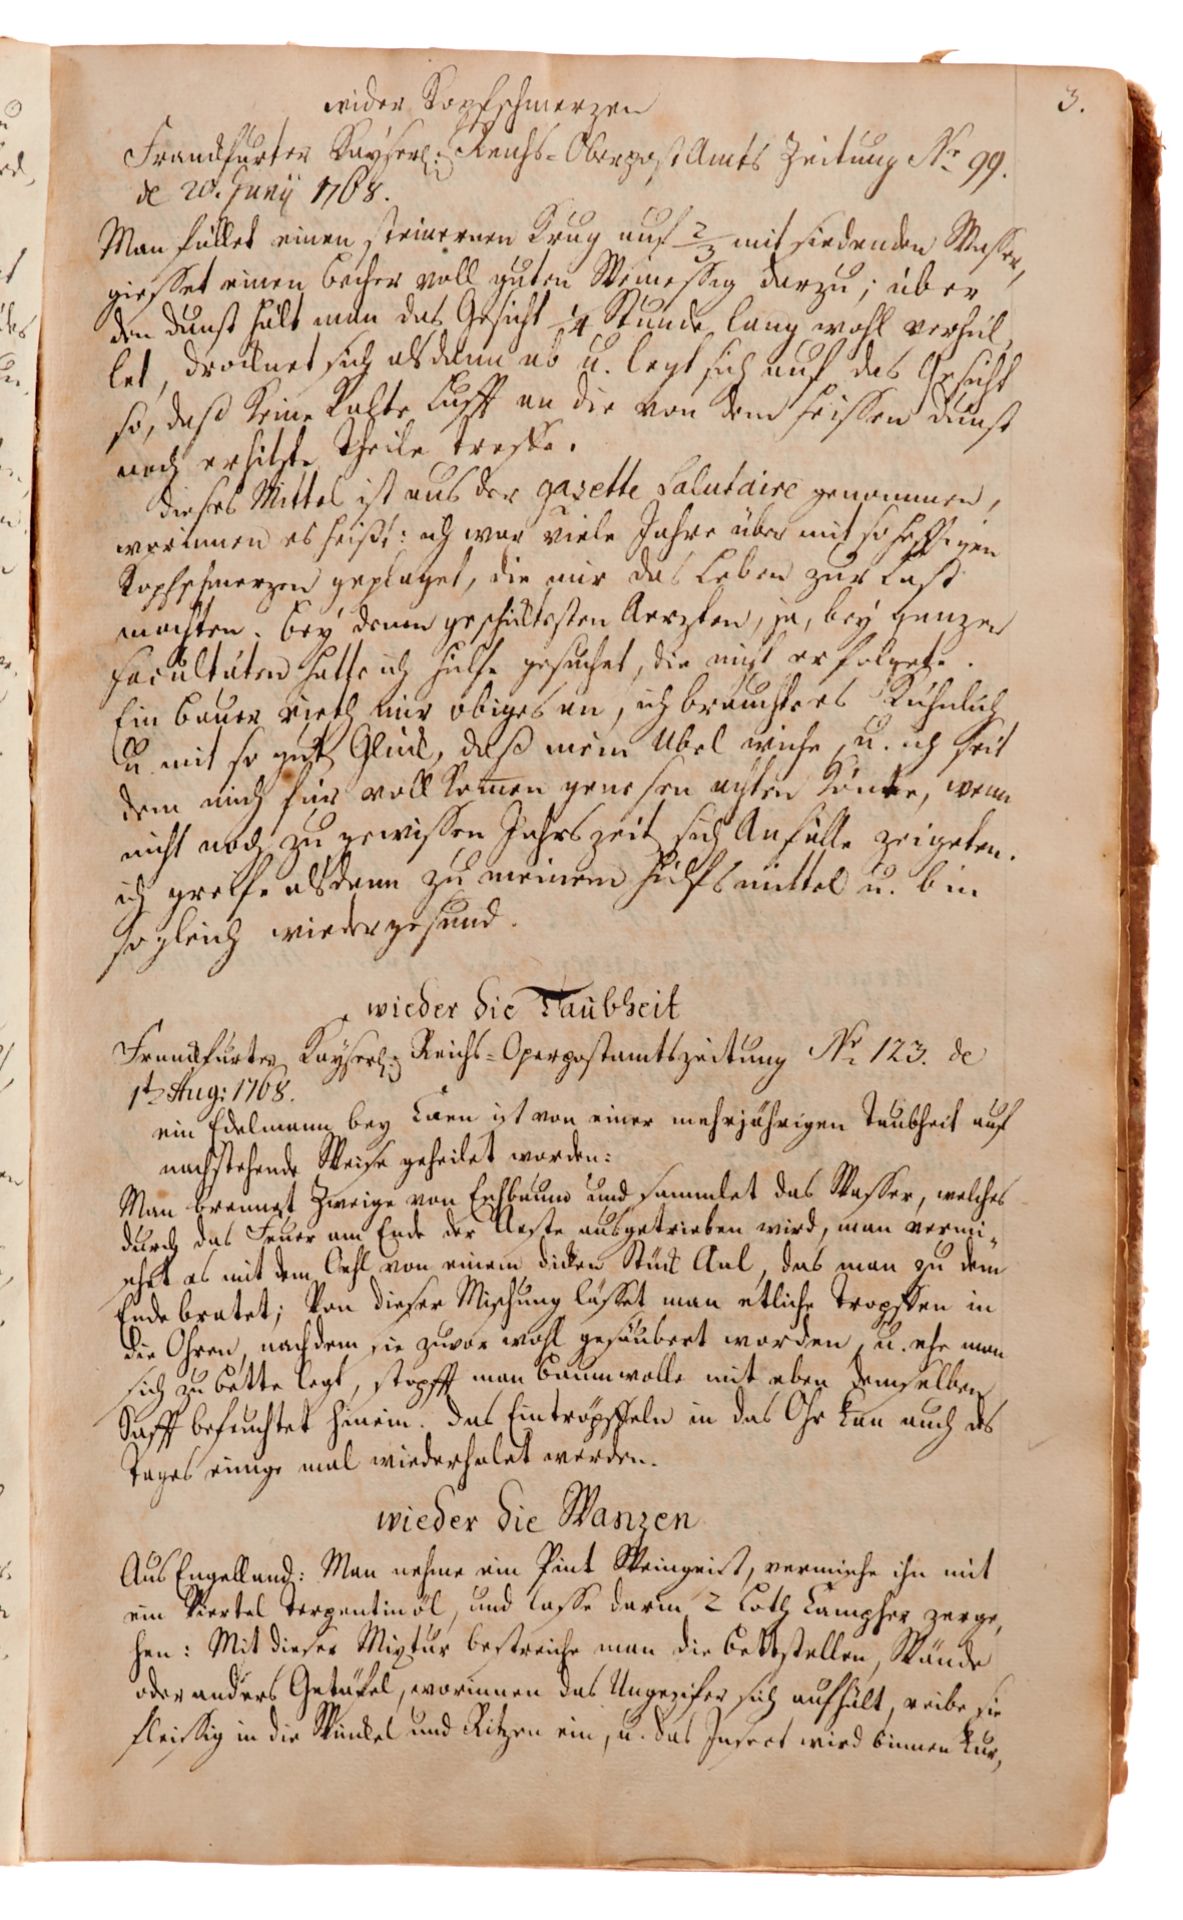 3.
wider Kopfschmerzen
Franckfurter Kayserl: Reichs-OberpostAmts Zeitung No 99.
de Junij 1768.
Man füllet einen steinernen Krug auf 2/3 mit siedenden Wasser,
giesset einen becher voll guten Weinessig darzu; über
den dunst hält man das Gesicht 1/4 Stunde lang wohl verhül,
let, drocknet sich alsdann ab u. legt sich auf das Gesicht
so, daß keine kalte Lufft an die von dem heissen dunst
noch erhitzte Theile treffe.
dieses Mittel ist aus der gazette Salutaire genommen,
worinnen es heißt: ich war viele Jahre über mit so hefftigen
Kopfschmerzen geplaget, die mir das Leben zur Last
machten. bey denen geschicktesten Aerzten, ja, bey ganzen
facultäten hatte ich hülfe gesuchet, die nicht erfolgete.
Ein bauer rieth mir obiges an, ich brauchte es kühnlich
u. mit so gut Glück, daß mein Übel wiche, u. ich seit
dem mich für vollkomen genesen achten könte, wenn
nicht noch zu gewissen Jahrszeit sich Anfälle zeigeten.
ich greiffe alsdenn zu meinem hülfsmittel u. bin
sogleich wieder gesund.
wieder die Taubheit
Franckfurter Kayserl: Reichs-Operpostamtszeitung No 123. de
1t Aug: 1768.
ein Edelmann bey Caen ist von einer mehrjährigen Taubheit auf
nachstehende Weise geheilet worden:
Man brennet Zweige von Eschbaum und sammlet das Wasser, welches
durch das Feuer am Ende der Aeste ausgetrieben wird, man vermi„
schet es mit dem Oehl von einem dicken Stück Aal, das man zu dem
Ende bratet; Von dieser Mischung lässet man etliche Tropffen in
die Ohren, nachdem sie zuvor wohl gesäubert worden, u. ehe man
sich zu bette legt, stopfft man baumwolle mit eben demselben
Safft befeuchtet hinein. das Eintröpffeln in das Ohr kan auch des
Tages einige mal wiederholet werden.
wieder die Wanzen
Aus Engelland: Man nehme ein Pint Weingeist, vermische ihn mit
ein Viertel Terpentinöl, und lasse darin 2 Loth Campher zerge,
hen: Mit dieser Mixtur bestreiche man die bettstellen, Wände
oder anders Getäfel, worinnen das Ungezifer sich aufhält, reibe sie
fleissig in die Winckel und Ritzen ein, u. das Insect wird binnen kur,